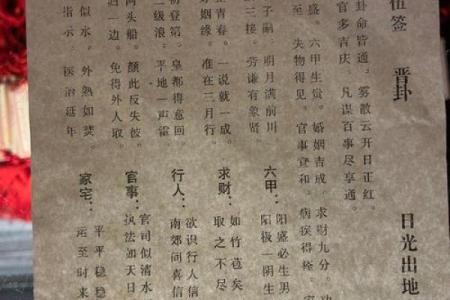 伍签 晋卦
日光出地
卦命皆通,雾散云开日正红。
官多吉庆 凡谋百事尽享通。
盛。六甲生贵 婚姻吉成 求财九分
至 失物得见 官事宜和 病疾得痊
子嗣 明月满前川
三接 劳谦有象贤
青春。一说就一成。
好姻缘。准在三月行。
初登第 皇都得意回。
二级浪。平地一声雷
两头船。顾此反失彼。
归一边。免得外人取。
似水。外熱如焚。
指示。医治延年
六甲:
阳盛必生男
阳极一阴生
求财:
如竹苞矣
取之不尽
行人:
欲识行人信
南郊问喜信
官事:
官司似清水
执法如天日
家宅:
平平稳稳
运至时来